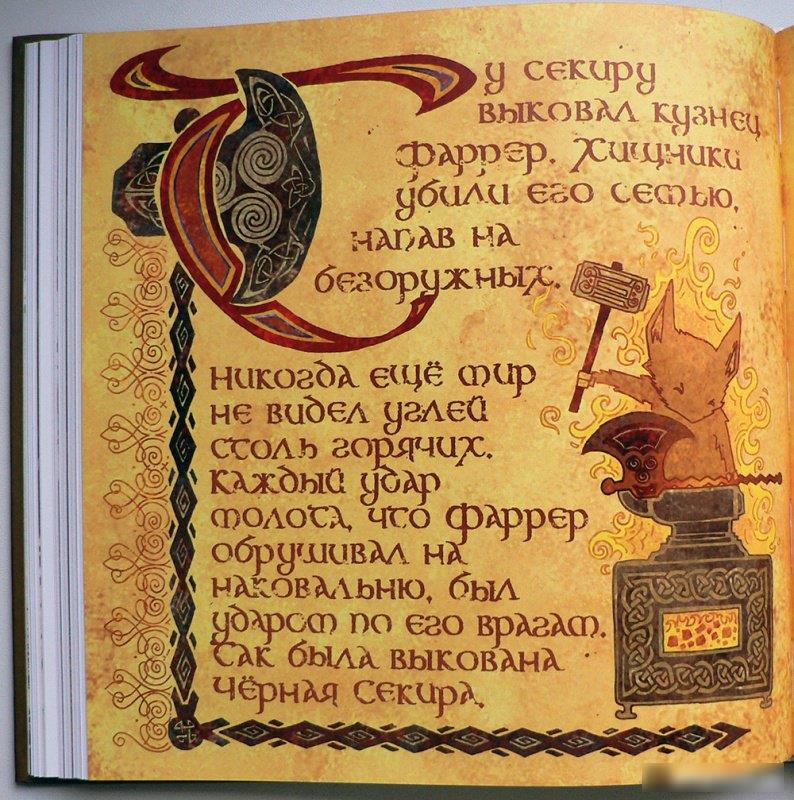 Ту секиру
выковал кузнец
Фаррер. Хищники
убили его семью,
напав на
безоружных.
Никогда ещё мир
не видел углей
столь горячих.
Каждый удар
молота, что Фаррер
обрушивал на
наковальню, был
ударом по его врагам.
Так была выкована
Чёрная Секира.